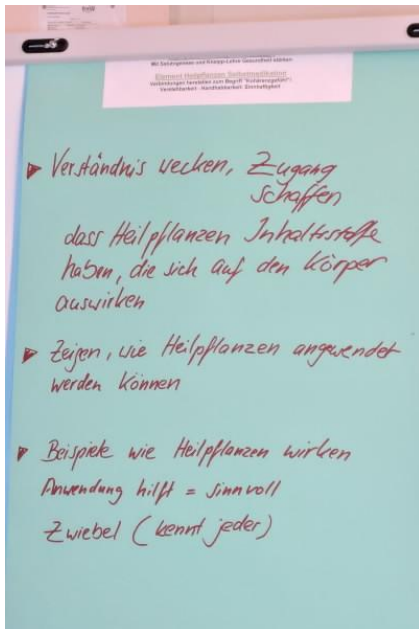 Mit Salutogenese und Kneipp-Lehre Gesundheit stärken
Element Heilpflanzen Selbstmedikation
Verbindungen herstellen zum Begriff "Kohärenzgefühl":
Verstehbarkeit - Handhabbarkeit - Sinnhaftigkeit
Verständnis wecken, Zugang
schaffen
dass Heilpflanzen Inhaltsstoffe
haben, die sich auf den Körper
auswirken
Zeigen, wie Heilpflanzen angewendet
werden können
Beispiele wie Heilpflanzen wirken
Anwendung hilft = sinnvoll
Zwiebel (kennt jeder)